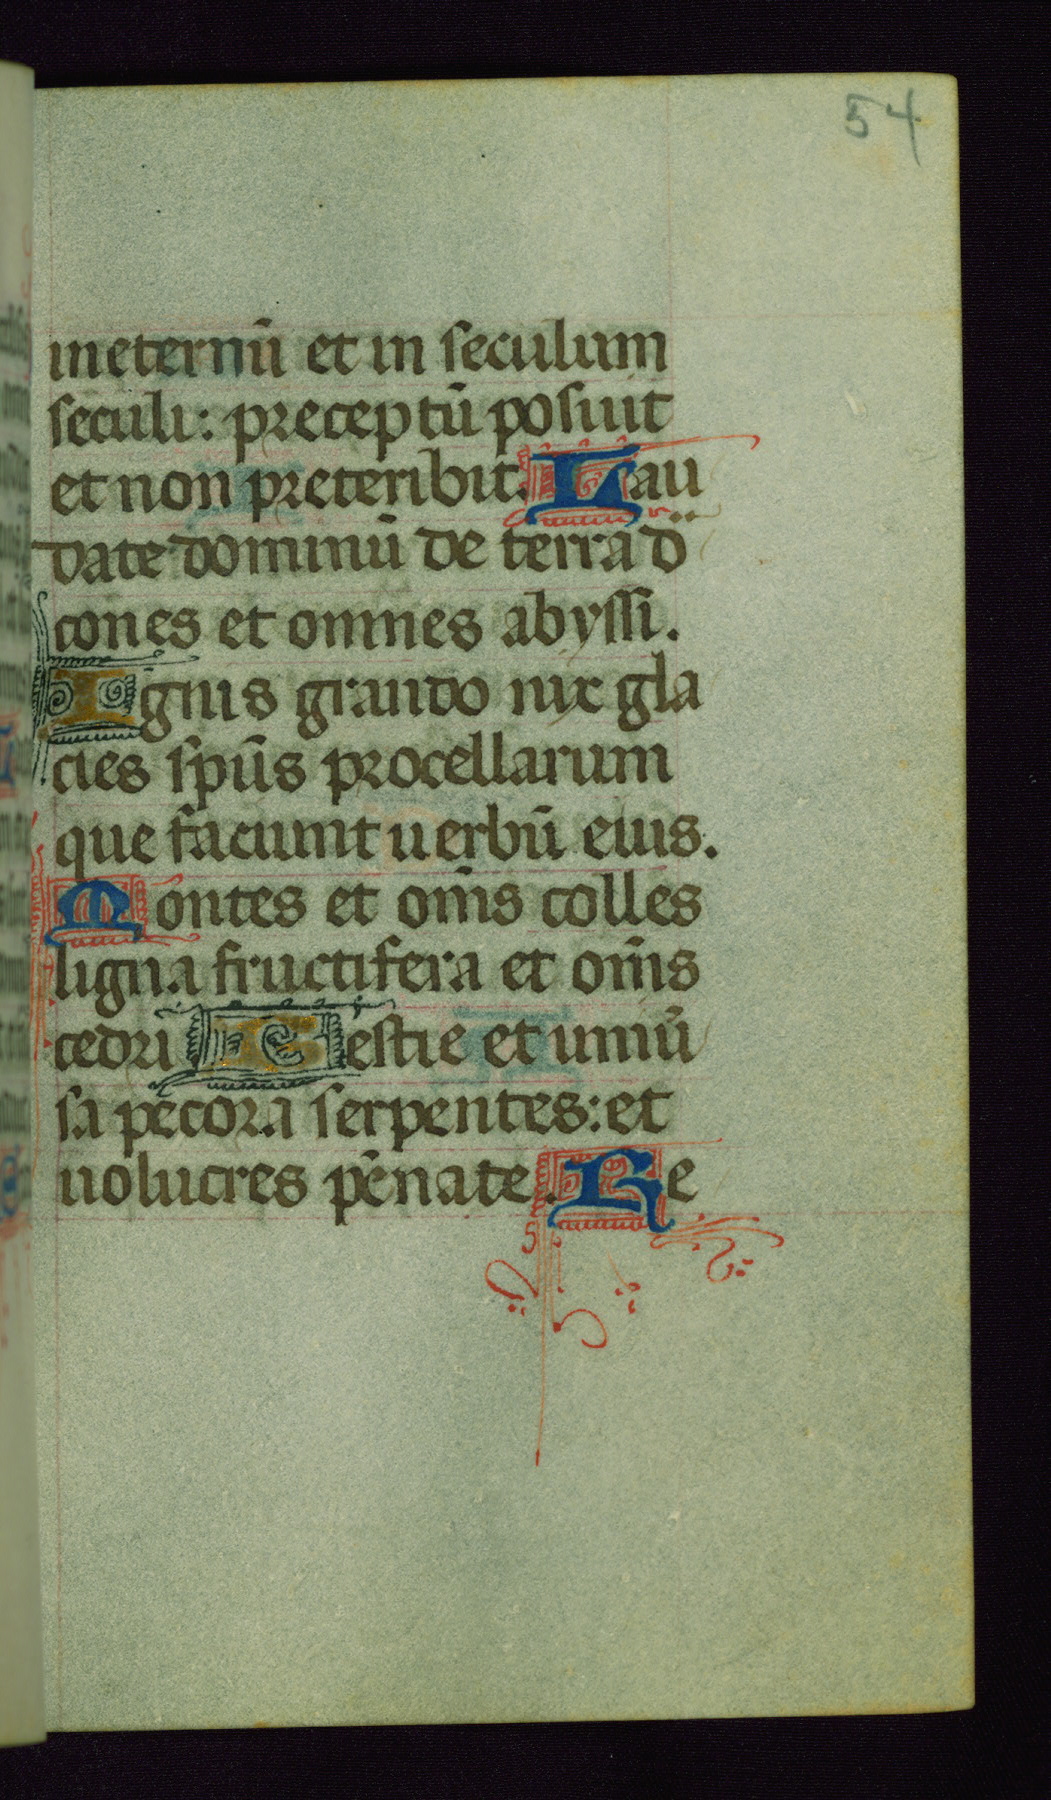 54
ineternū et in seculum
seculi: preceptū posuit
et non preteribit. Lau
date dominū de terra d
cones et omnes abyssi.
Ignis grando nix gla
cies sp̄us procellarum
que faciunt uerbū eius.
Montes et om̄s colles
ligna fructifera et om̄s
cedri Bestie et uniū
sa pecora serpentes: et
uolucres pēnate. Re